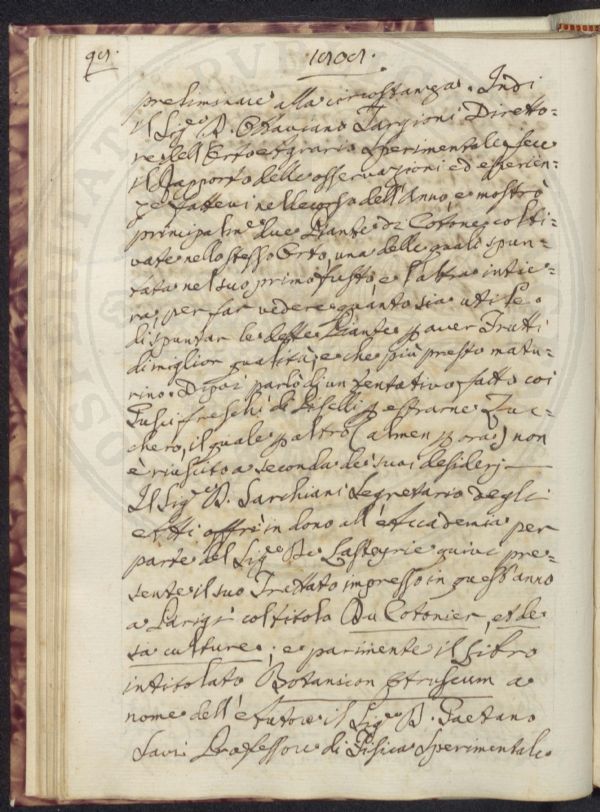 1808.
preliminare alla circostanza. Indi
il Sig.e D. Ottaviano Targioni Diretto=
re dell'Orto Agrario Sperimentale lesse
il Rapporto delle osservazioni ed esperien=
ze fattevi nelle corso dell'Anno, e mostrò
principalm.e due Piante di Cotone colti=
vate nello stesso Orto, una delle quali spun=
tata nel suo primo fusto, e l'altra intie=
ra, per far vedere quanto sia utile
di spuntar le dette Piante p aver Frutti
di miglior qualità, e che più presto matu=
rino. Di poi parlò di un tentativo fatto coi
Gusci freschi di Piselli p estrarne Zuc=
chero, il quale p altro (almen p ora) non
è riuscito a seconda dei suoi desiderj
Il Sig.e D. Sarchiani Segretario degli
Atti offrì in dono all'Accademia per
parte del Sig.e De Lasteyrie quivi pre=
sente il suo Trattato impresso in quest'anno
a Parigi col titolo Du Cotonier, et de
sa culture; e parimente il Libro
intitolato Botanicon Etruscum a
nome dell'Autore il Sig.e D. Gaetano
Savi Professore di Fisica Sperimentale